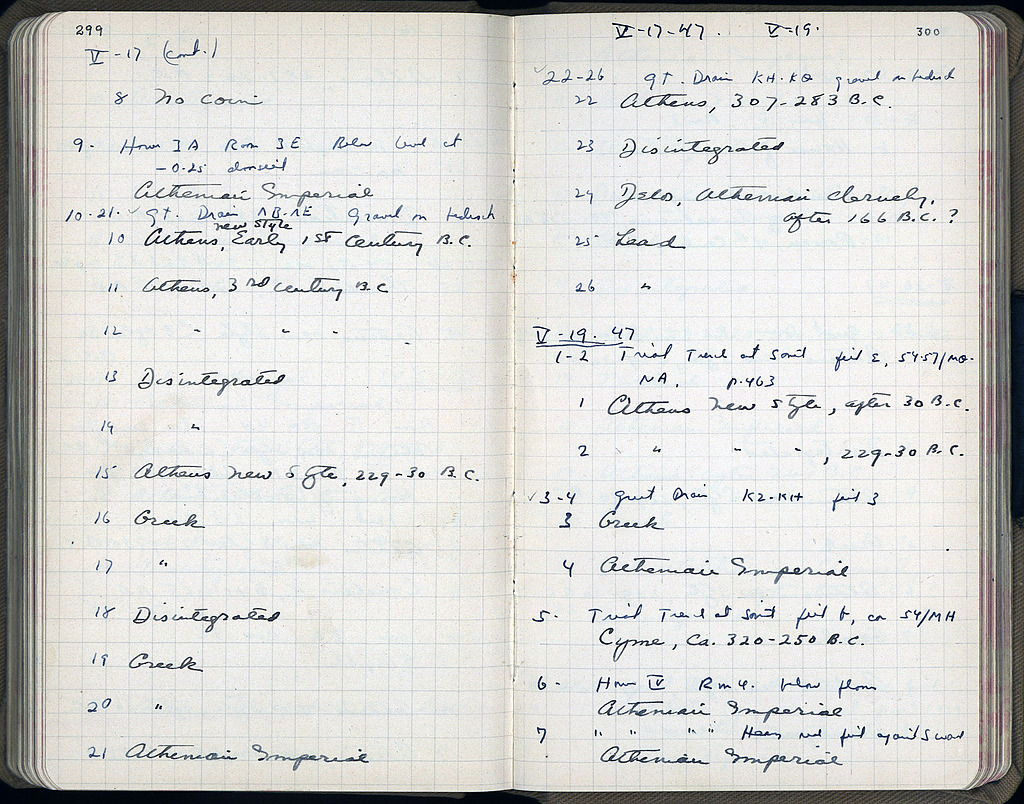 299
V-17 (cont.)
8 No coin
9. House 3A Room 3E Below level at
-0.25
Athenian Imperial
10-21. ✓ Gt. Drain ΛΒ-ΛΕ Gravel on bedrock
new style
10 Athens, Early 1st century B.C.
11 Athens, 3rd century B.C
12 " " "
13 Disintegrated
14 "
15 Athens New Style, 229-30 B.C.
16 Greek
17 "
18 Disintegrated
19 Greek
20 "
21 Athenian Imperial
V-17-47. V-19.
300
✓ 22-26 Gt. Drain KH-KΘ gravel on bedrock
22 Athens, 307-283 B.C.
23 Disintegrated
24 Delos, Athenian cleruchy,
after 166 B.C.?
25 Lead
26 "
V-19-47
1-2 Trial Trench at South fill E, 54-57/MΘ-
NA. p.463
1 Athens New Style, after 30 B.C.
2 " " ", 229-30 B.C.
✓ 3-4 Great Drain KZ-KH fill 3
3 Greek
4 Athenian Imperial
5. Trial Trench at South fill, 54/MH
Cyme, Ca. 320-250 B.C.
6- House IV Rm 4. below floor
Athenian Imperial
7 " " " " Heavy red fill against S wall
Athenian Imperial